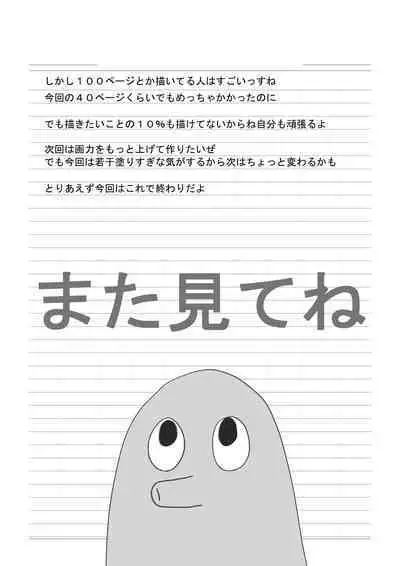 しかし１００ページとか描いてる人はすごいっすね
今回の４０ページくらいでもめっちゃかかったのに
でも描きたいことの１０％も描けてないからね自分も頑張るよ
次回は画力をもっと上げて作りたいぜ
でも今回は若干塗りすぎな気がするから次はちょっと変わるかも
とりあえず今回はこれで終わりだよ
また見てね